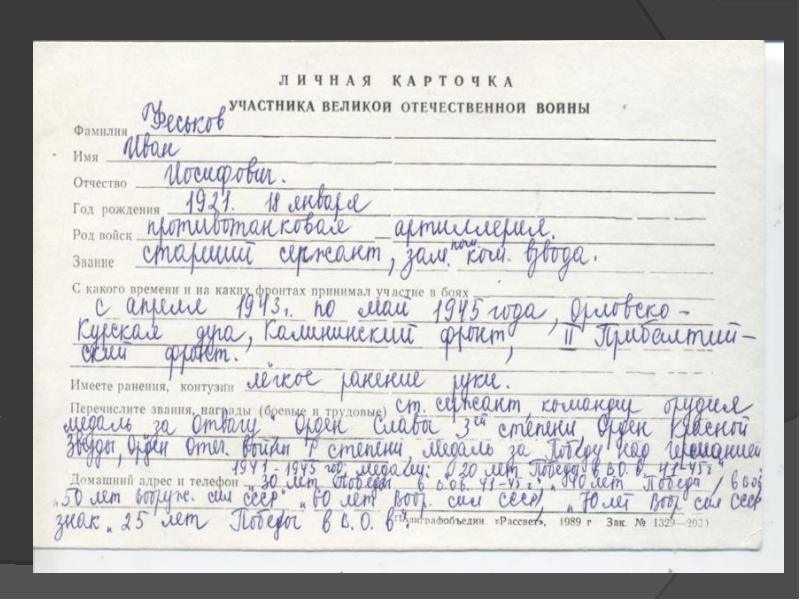 ЛИЧНАЯ КАРТОЧКА
УЧАСТНИКА ВЕЛИКОЙ ОТЕЧЕСТВЕННОЙ ВОЙНЫ
Фамилия Феськов
Имя Иван
Отчество Иосифович.
Год рождения 1921. 18 января
Род войск противотанковая артиллерия.
Звание старший сержант, зам. ком. взвода.
С какого времени и на каких фронтах принимал участие в боях
с апреля 1943г. по май 1945 года, Орловско-
Курская дуга, Калининский фронт, II Прибалтий-
ский фронт.
Имеете ранения, контузии лёгкое ранение руки.
Перечислите звания, награды (боевые и трудовые) ст. сержант, командир орудия
медаль за отвагу" Орден Славы 3ей степени Орден Красной
Звезды, Орден Отеч. войны I степени, медаль за Победу над Германией
1941-1945 год, медали: "20 лет Победы в В.О.в. 41-45г"
Домашний адрес и телефон „30 лет Победы в В.О.в. 41-45г" „40 лет Победы", в В.О.в
„50 лет вооруж. сил СССР" „60 лет Воор. сил СССР", „70 лет Воор сил СССР
знак „25 лет Победы в В.О.в"
Полиграфобъедин. «Рассвет», 1989 г Зак. № 1329—2000